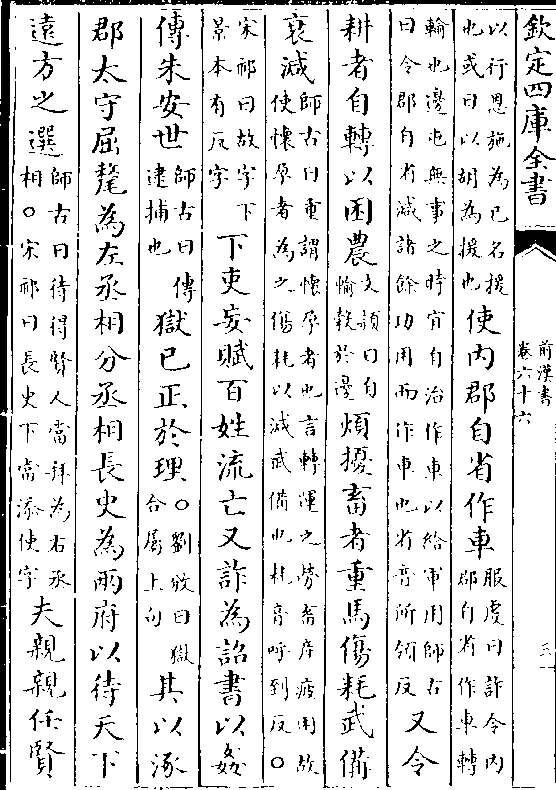 欽定四庫全書
前漢書
卷六十六
三
以行恩施為已名援也或曰以胡為援也使内郡自省作車服虔曰詐令内郡自省作車轉
輸也邊屯無事之時宜自治作車以給軍用師古曰令郡自省減諸餘功用而作車也省音所領反又令
耕者自轉以困農文頴曰自輸穀於邊煩擾畜者重馬傷耗武備
衰減師古曰重謂懷孕者也言轉運之勞畜産疲困故使懷孕者為之傷耗以減武備也耗音呼到反○
宋祁曰故字下景本有反字下吏妄賦百姓流亡又詐為詔書以姦
傳朱安世師古曰傳逮捕也獄已正於理○劉攽曰獄合屬上句其以涿
郡太守屈氂為左丞相分丞相長史為兩府以待天下
遠方之選師古曰待得賢人當拜為右丞相○宋祁曰長史下當添使字夫親親任賢